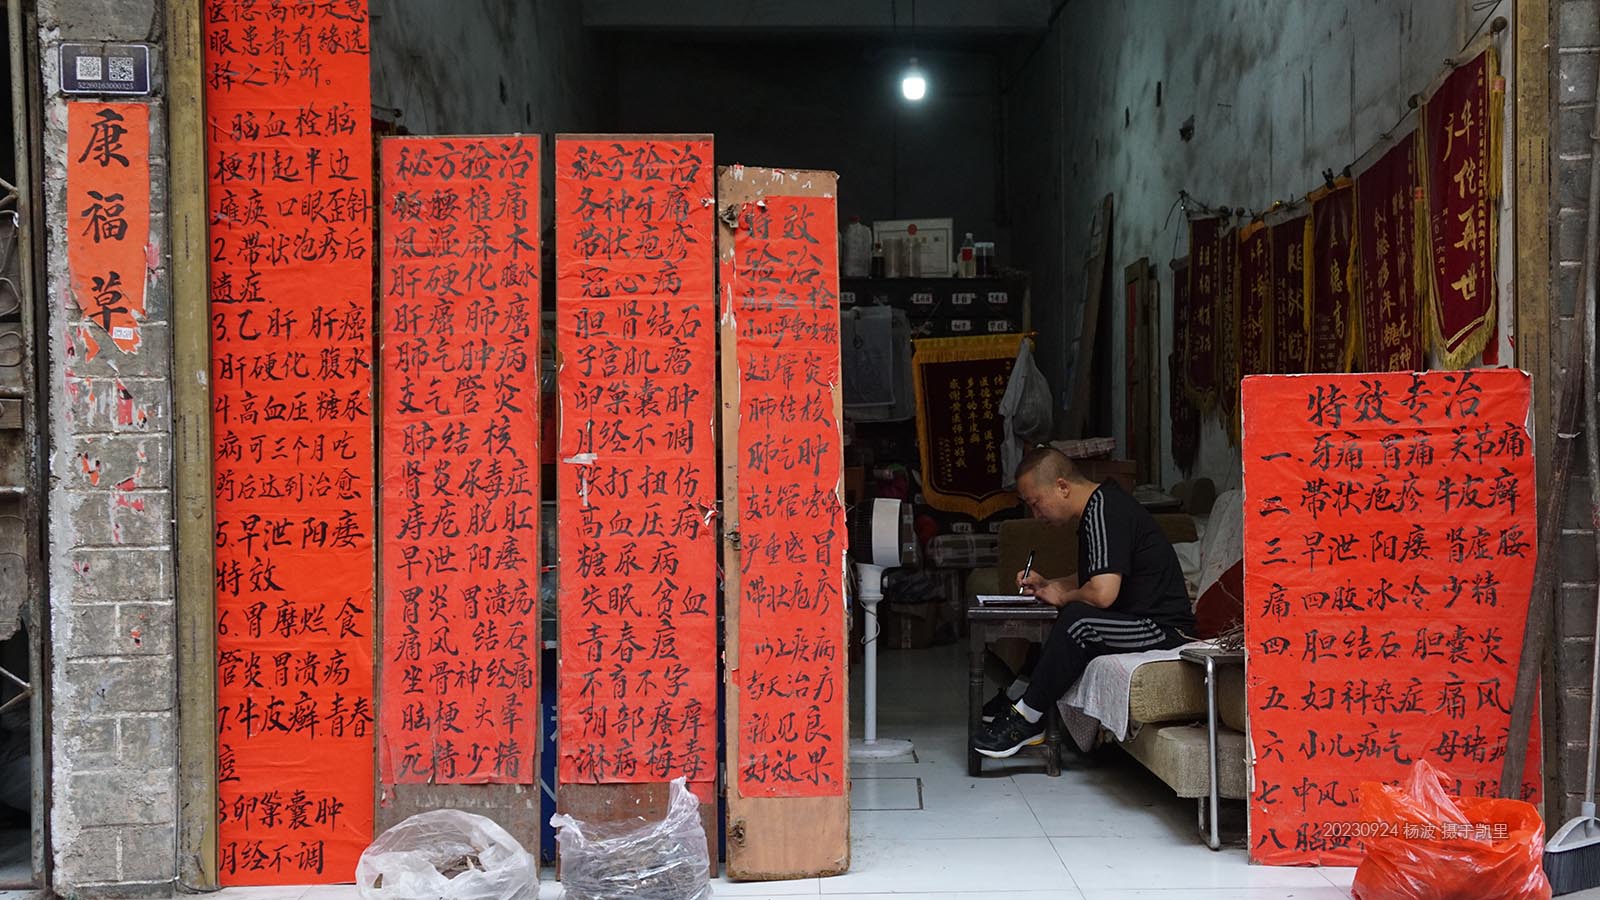 52260163000325
康
福
草
医德高尚是患
眼患者有緣选
择之诊所。
1.脑血栓.脑
梗引起半边
瘫痪 口眼歪斜
2.带状泡疹后
遗症.
3.乙肝 肝癌
肝硬化.腹水
4.高血压.糖尿
病可三个月吃
药后达到治愈
5.早泄 阳痿
特效
6.胃糜烂.食
管炎胃溃疡
7.牛皮癣青春
痘
8卵巢囊肿.
月经不调
秘方验治
颈腰椎痛
风湿麻木
肝硬化腹水
肝癌肺癌
肺气肿病
支气管炎
肺结核
肾炎尿毒症
痔疮脱肛
早泄.阳痿
胃炎.胃溃疡
痛风.结石
坐骨神经痛
脑梗.头晕
死精.少精
秘方验治
各种牙痛
带状疱疹
冠心病
胆肾结石
子宫肌瘤
卵巢囊肿
月经不调
跌打扭伤
高血压病
糖尿病
失眠贫血
青春痘
不育不孕
阴部瘙痒
淋病梅毒
特效
验治
脑血栓
小儿严重咳嗽
支气管炎
肺结核
肺气肿
支气管哮喘
严重感冒
带状疱疹
以上疾病
当天治疗
就见良
好效果
华佗再世
感谢黄医师治好我
多年的牛皮癣
医德高尚 医术精湛
特效专治
一.牙痛.胃痛.关节痛
二.带状疱疹.牛皮癣
三.早泄.阳痿.肾虚腰
痛.四肢冰冷.少精.
四.胆结石.胆囊炎
五.妇科杂症.痛风
六.小儿疝气.母猪疯
七.中风
八.脑血
20230924 杨波 摄于凯里